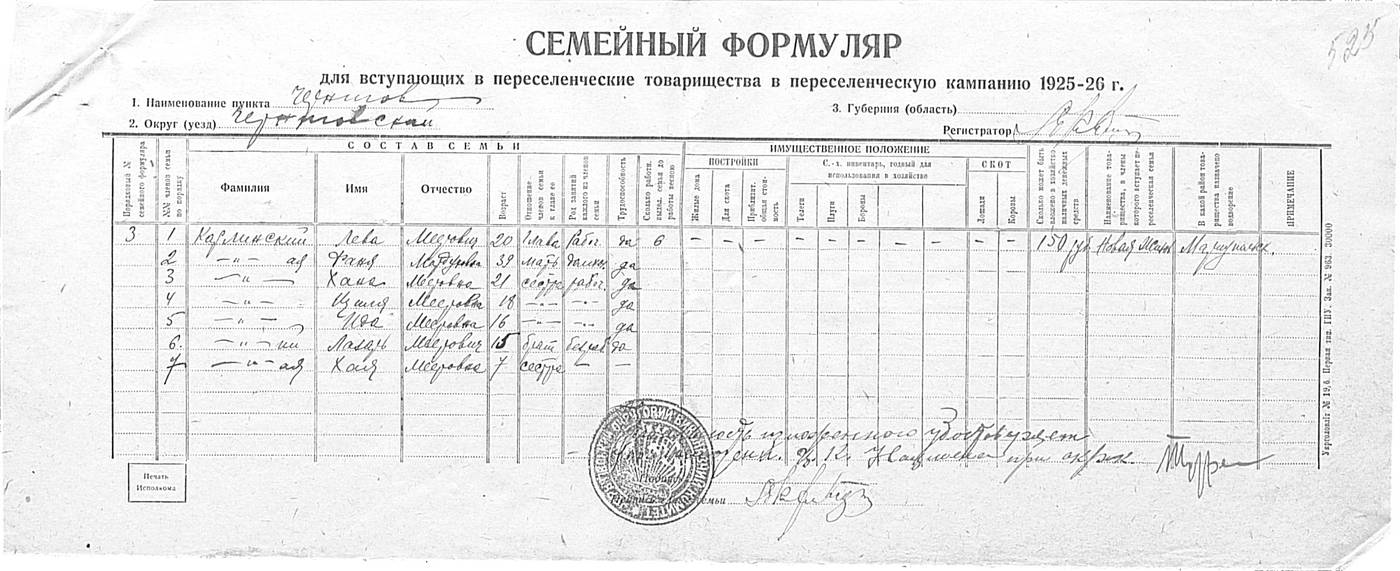 525
СЕМЕЙНЫЙ ФОРМУЛЯР
для вступающих в переселенческие товарищества в переселенческую кампанию 1925-26 г.
1. Наименование пункта Чернигов
3. Губерния (область)
2. Округ (уезд) Черниговский
Регистратор
СОСТАВ СЕМЬИ
ИМУЩЕСТВЕННОЕ ПОЛОЖЕНИЕ
Порядковый № семейного формуляра
№№ членов семьи по порядку
Фамилия
Имя
Отчество
Возраст
Отношение членов семьи к главе ее
Род занятий каждого из членов семьи
Трудоспособность
Сколько работн. выдел. семья до работы весною
ПОСТРОЙКИ
Жилые дома
Для скота
Приблизит. общая стоимость
С.-х. инвентарь, годный для использования в хозяйстве
Телеги
Плуги
Бороны
СКОТ
Лошади
Коровы
Сколько может быть вложено в хозяйство наличных денежных средств
Наименование товарищества, в члены которого вступает переселенческая семья
В какой район товарищества назначено водворение
ПРИМЕЧАНИЕ
3 1 Карлинский Лева Меерович 20 глава рабоч. да 6 — — — — — — — — — — 150 руб. Новая Жизнь
2 —"— ая Фаня 39 мать домхоз. да
3 —"— Хана Мееровна 21 сестра рабоч. да
4 —"— Циля Мееровна 18 —"— —"— да
5 —"— Ида Мееровна 16 —"— —"— да
6. —"— ий Лазарь Меерович 15 брат безраб да
7 —"— ая Хая Мееровна 7 сестра — —
удостоверяет
при окрик.
Печать Исполкома
семьи
Укрголовліт № 19,6. Первая тип. ГПУ. Зак. № 963. 30000